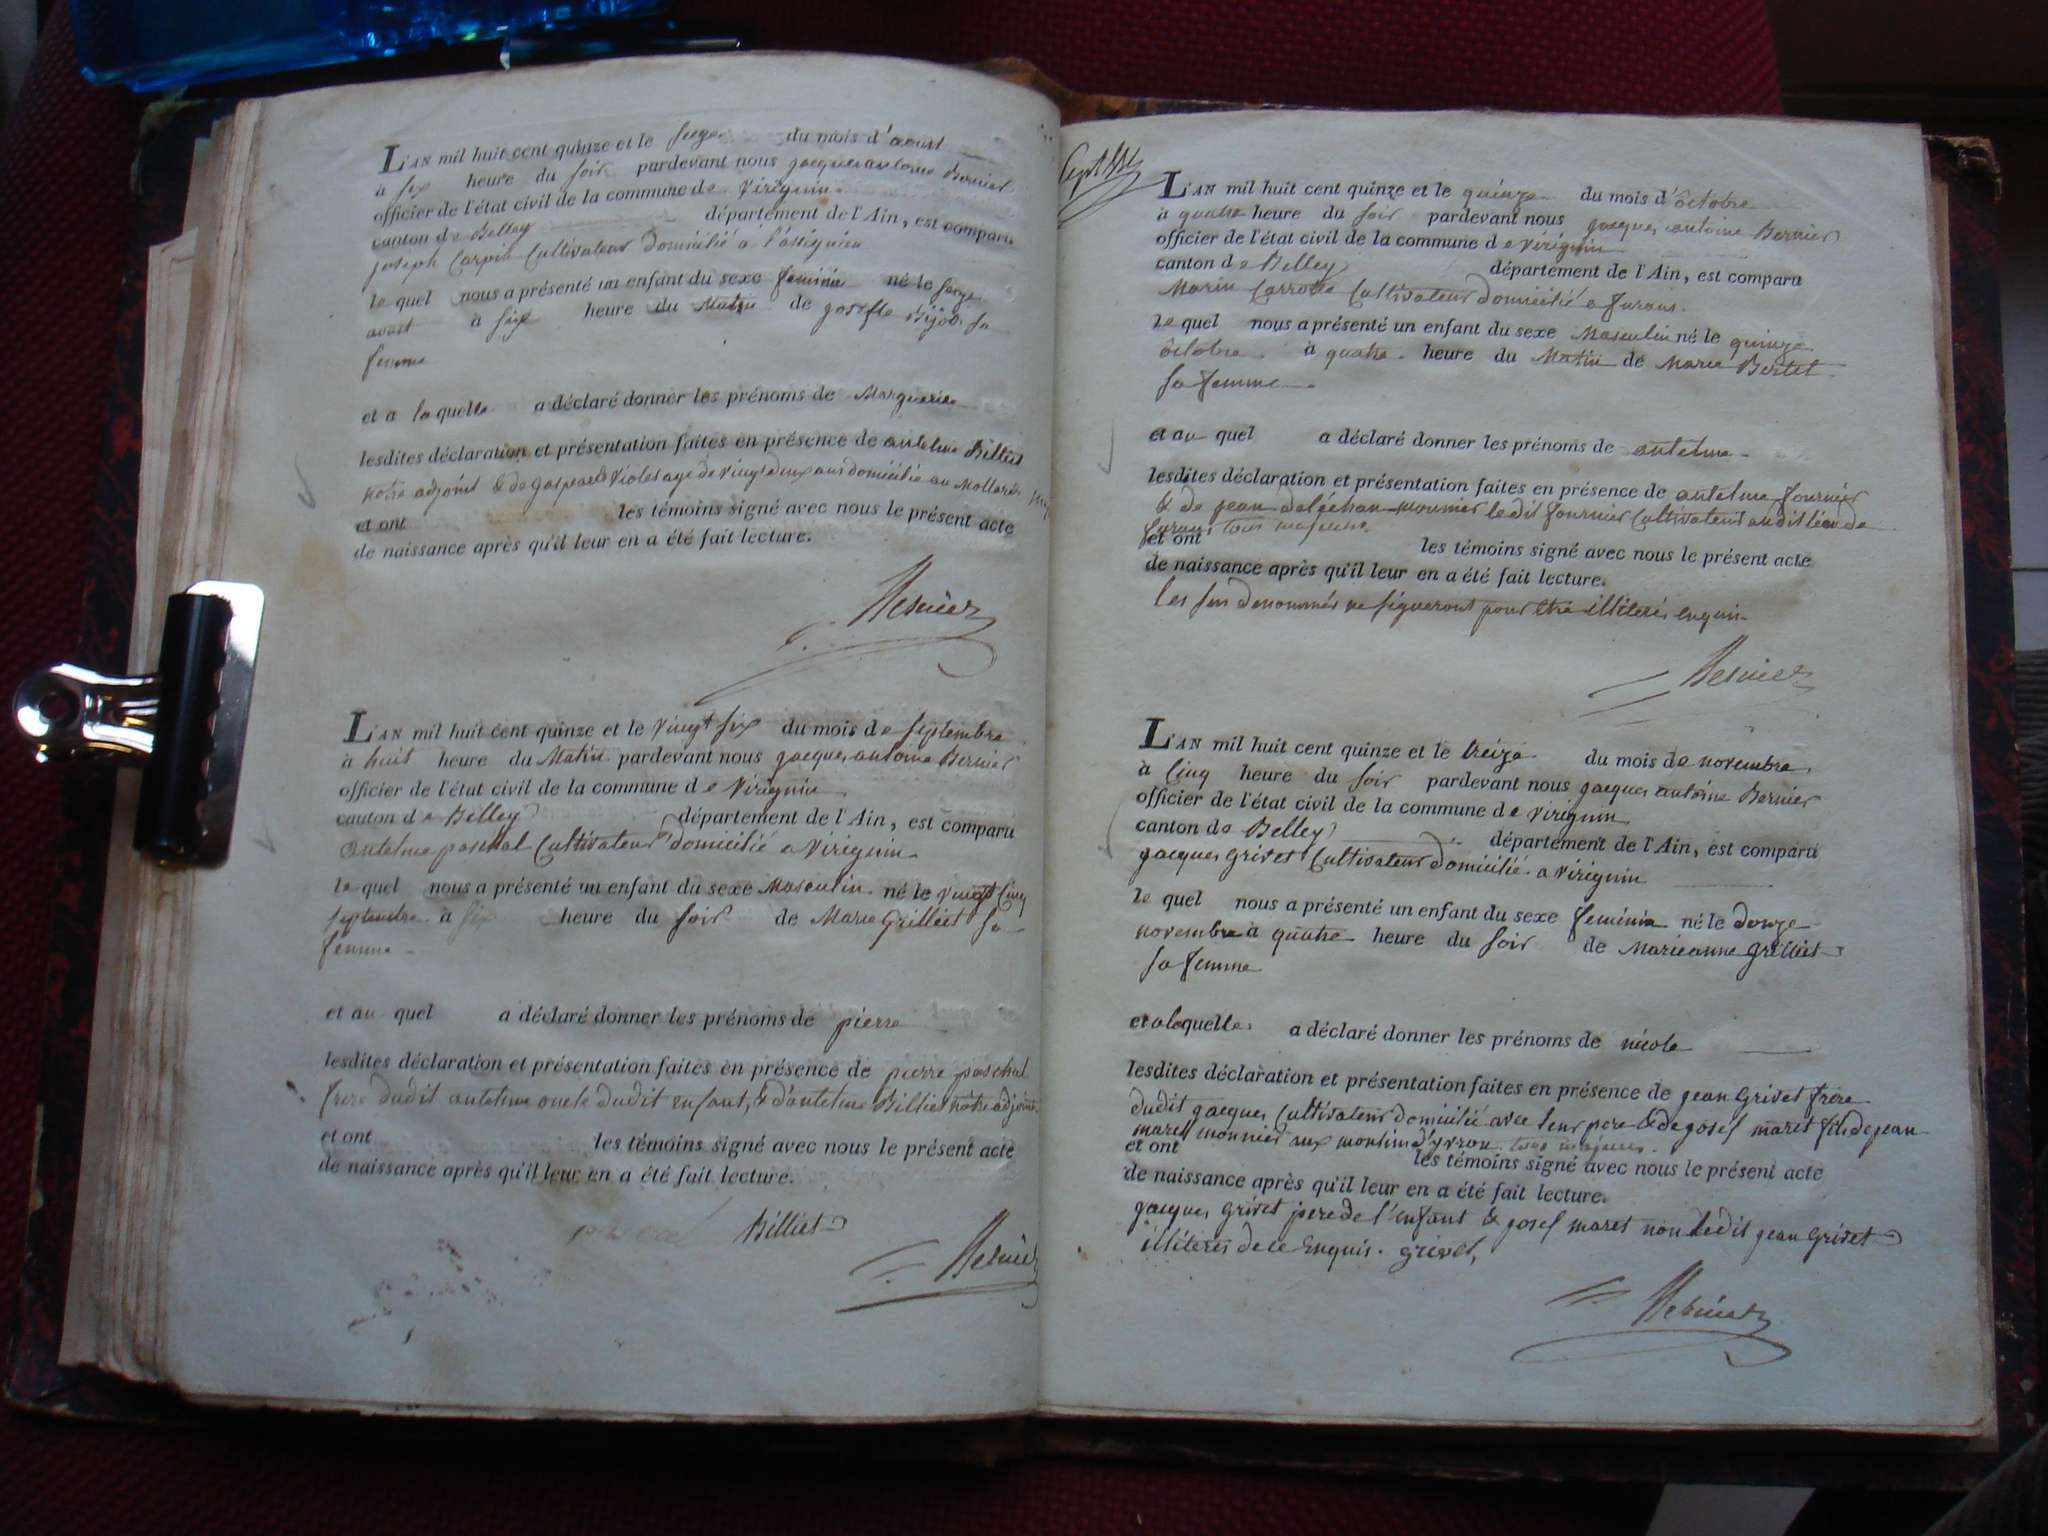 L'AN mil huit cent quinze et le seize du mois d'aoust
à six heure du soir pardevant nous jacques antoine Bernier
officier de l'état civil de la commune de Virignin
canton de Belley département de l'Ain, est comparu
joseph Carpin Cultivateur domicilié a
le quel nous a présenté un enfant du sexe feminin né le seize
aoust à six heure du Matin de josefte Bijot sa
femme
et a laquelle a déclaré donner les prénoms de Marguerite
lesdites déclaration et présentation faites en présence de antelme Billiet
notre adjoint & de gaspard Violet age de vingt deux ans domicilié au Mollard
et ont les témoins signé avec nous le présent acte
de naissance après qu'il leur en a été fait lecture.
Bernier
L'AN mil huit cent quinze et le vingt six du mois de septembre
à huit heure du Matin pardevant nous jacques antoine Bernier
officier de l'état civil de la commune de Virignin
canton de Belley département de l'Ain, est comparu
antelme paschal Cultivateur domicilié a Virignin
le quel nous a présenté un enfant du sexe Masculin né le vingt Cinq
septembre à six heure du soir de Marie Grilliet sa
femme
et au quel a déclaré donner les prénoms de pierre
lesdites déclaration et présentation faites en présence de pierre paschal
frere dudit antelme oncle dudit enfant, & d'antelme Billiet notre adjoint
et ont les témoins signé avec nous le présent acte
de naissance après qu'il leur en a été fait lecture.
Billiet
Bernier
L'AN mil huit cent quinze et le quinze du mois d'octobre
à quatre heure du soir pardevant nous jacques antoine Bernier
officier de l'état civil de la commune de Virignin
canton de Belley département de l'Ain, est comparu
Marin Carrotte Cultivateur domicilié a furans.
le quel nous a présenté un enfant du sexe Masculin né le quinze
octobre à quatre heure du Matin de Marie Bertet
sa femme
et au quel a déclaré donner les prénoms de antelme
lesdites déclaration et présentation faites en présence de antelme fournier
& de jean mounier ledit fournier Cultivateur audit lieu de
furans tous majeurs.
et ont les témoins signé avec nous le présent acte
de naissance après qu'il leur en a été fait lecture.
les sus denommés ne signeront pour etre illiterés enquis
Bernier
L'AN mil huit cent quinze et le treize du mois de novembre
à Cinq heure du soir pardevant nous jacques antoine Bernier
officier de l'état civil de la commune de Virignin
canton de Belley département de l'Ain, est comparu
jacques Grivet Cultivateur domicilié a Virignin
le quel nous a présenté un enfant du sexe feminin né le douze
novembre à quatre heure du soir de Marieanne Grilliet
sa femme
et alaquelle a déclaré donner les prénoms de nicole
lesdites déclaration et présentation faites en présence de jean Grivet frère
dudit jacques Cultivateur domicilié avec leur pere & de josef maret fils de jean
maret monnier aux moulins d'yvrou tous majeurs.
et ont les témoins signé avec nous le présent acte
de naissance après qu'il leur en a été fait lecture.
jacques Grivet pere de l'enfant & josef maret non ledit jean Grivet
illiterés de ce Enquis. Grivet,
Bernier